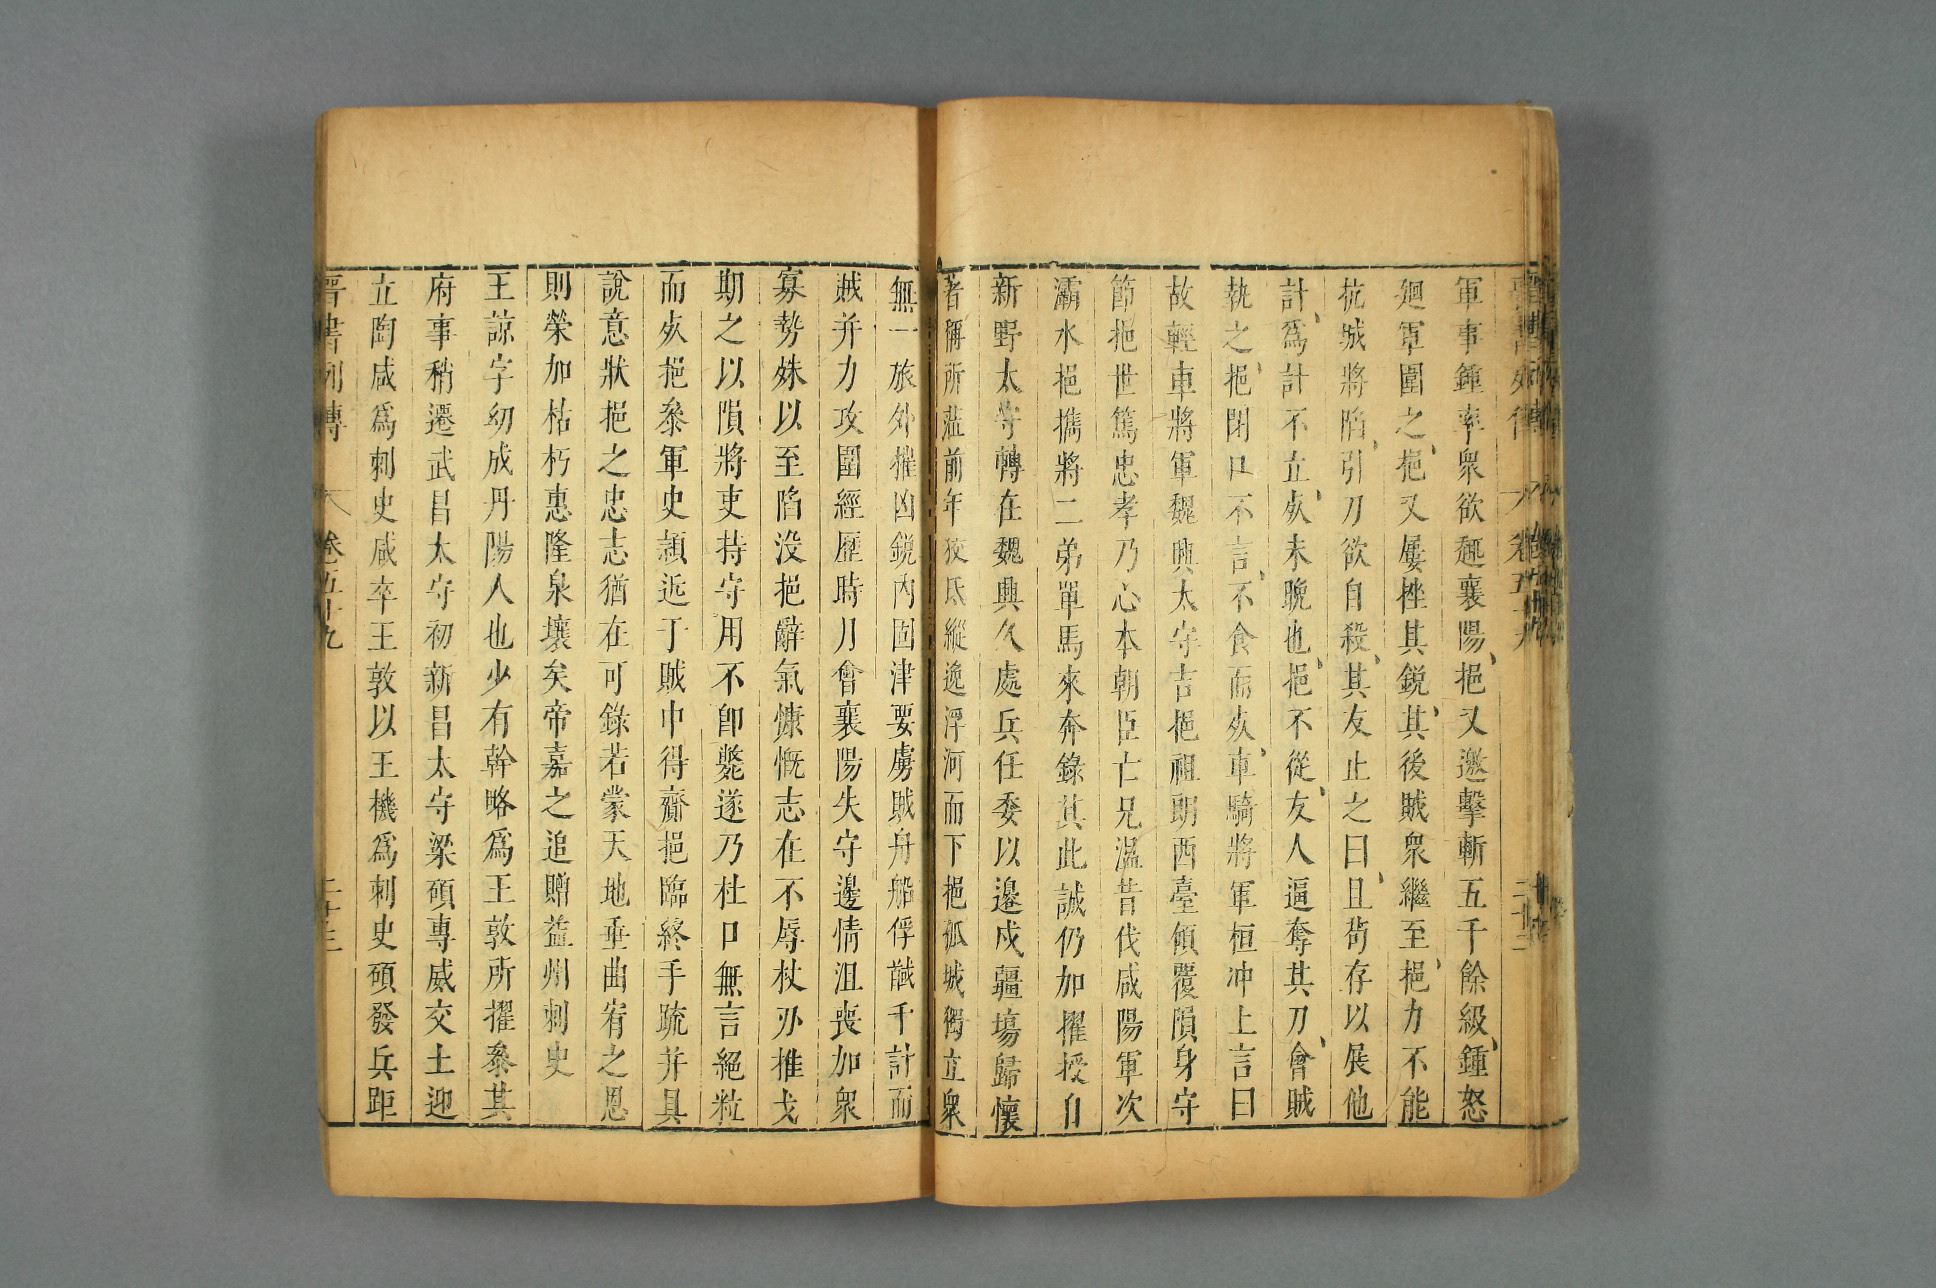 軍事鍾率衆欲趣襄陽挹又邀擊斬五千餘級鍾怒
廻軍圍之挹又屢挫其銳其後賊衆繼至挹力不能
抗城將陷引刀欲自殺其友止之曰且苟存以展他
計爲計不立死未晩也挹不從友人逼奪其刀會賊
執之挹閉口不言不食而死車騎將軍桓冲上言曰
故輕車將軍魏興太守吉挹祖朗西臺傾覆隕身守
節挹世篤忠孝乃心本朝臣亡兄温昔伐咸陽軍次
灞水挹擕將二弟單馬來奔錄其此誠仍加擢授自
新野太守轉在魏興久處兵任委以邊戍疆埸歸懷
著稱所莅前年狡氐縱逸浮河而下挹孤城獨立衆
無一旅外摧凶銳內固津要虜賊舟船俘馘千計而
賊并力攻圍經歷時月會襄陽失守邊情沮喪加衆
寡勢殊以至陷没挹辭氣慷慨志在不辱杖刃推戈
期之以隕將吏持守用不卽斃遂乃杜口無言絕粒
而死挹叅軍史潁近于賊中得齎挹臨終手疏并具
說意狀挹之忠志猶在可錄若蒙天地垂曲宥之恩
則榮加枯朽惠隆泉壤矣帝嘉之追贈益州刺史
王諒字幼成丹陽人也少有幹略爲王敦所擢叅其
府事稍遷武昌太守初新昌太守梁碩專威交土迎
立陶咸爲刺史咸卒王敦以王機爲刺史碩發兵距
晉書列傳 卷五十九 二十三